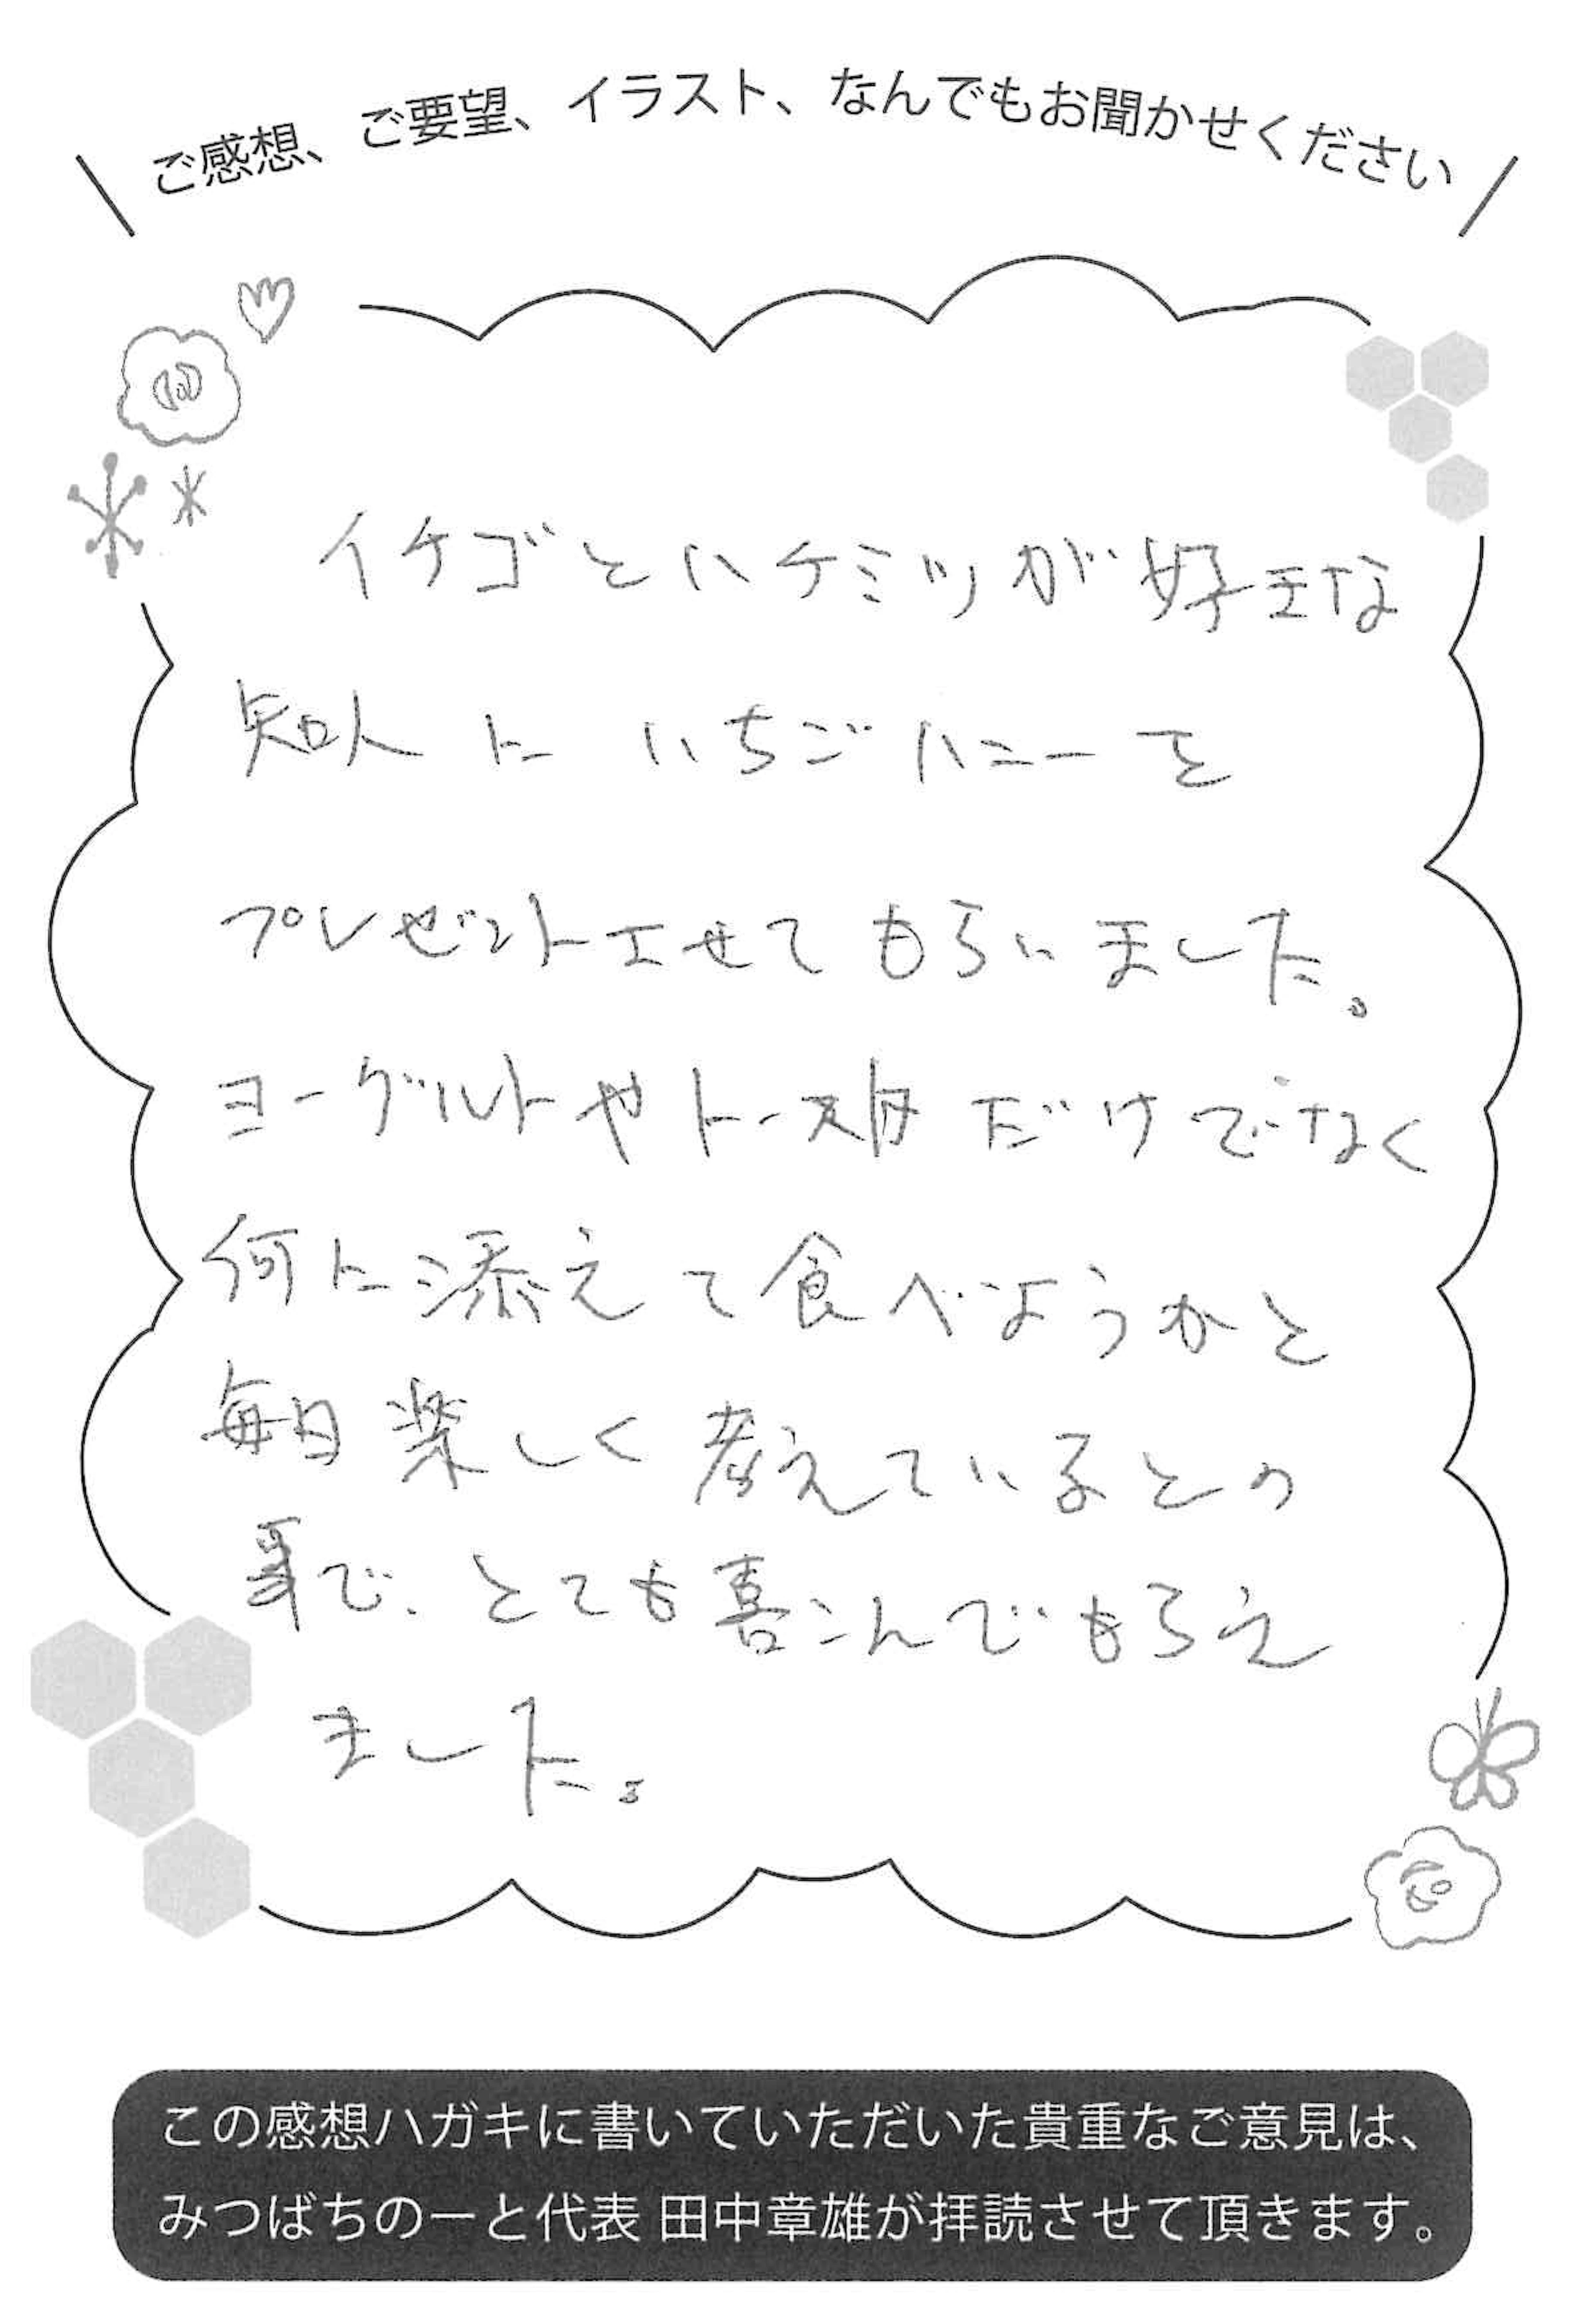 ご感想、ご要望、イラスト、なんでもお聞かせください
イチゴとハチミツが好きな
知人に いちごハニーを
プレゼントさせてもらいました。
ヨーグルトやトーストだけでなく
何に添えて食べようかと
毎日楽しく考えているとの
事で、とても喜こんでもらえ
ました。
この感想ハガキに書いていただいた貴重なご意見は、
みつばちのーと代表 田中章雄が拝読させて頂きます。